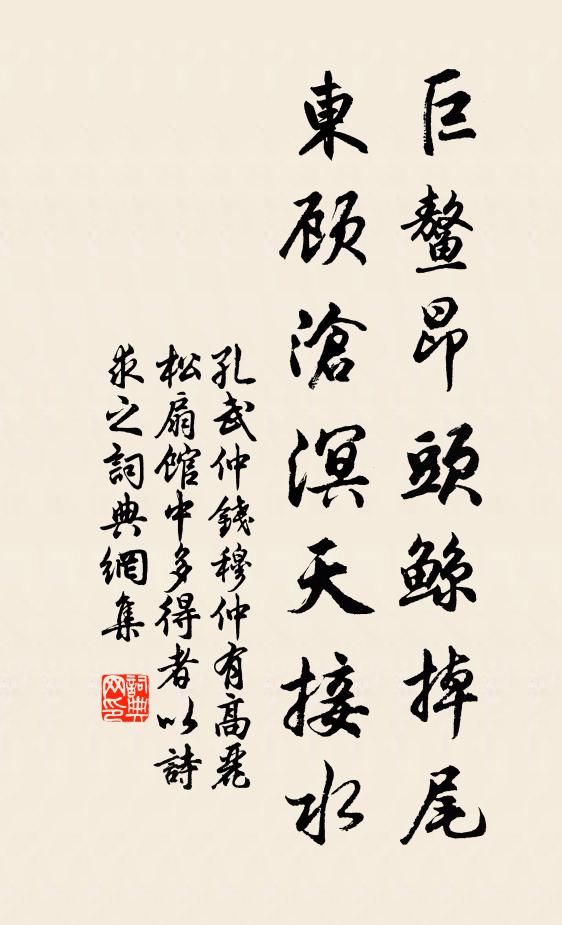 巨鳌昂頭鯨掉尾
東顾滄溟天接水
孔武仲錢穆仲有高麗
松扇館中多得者以詩
求之詞典網集
詞典
网印